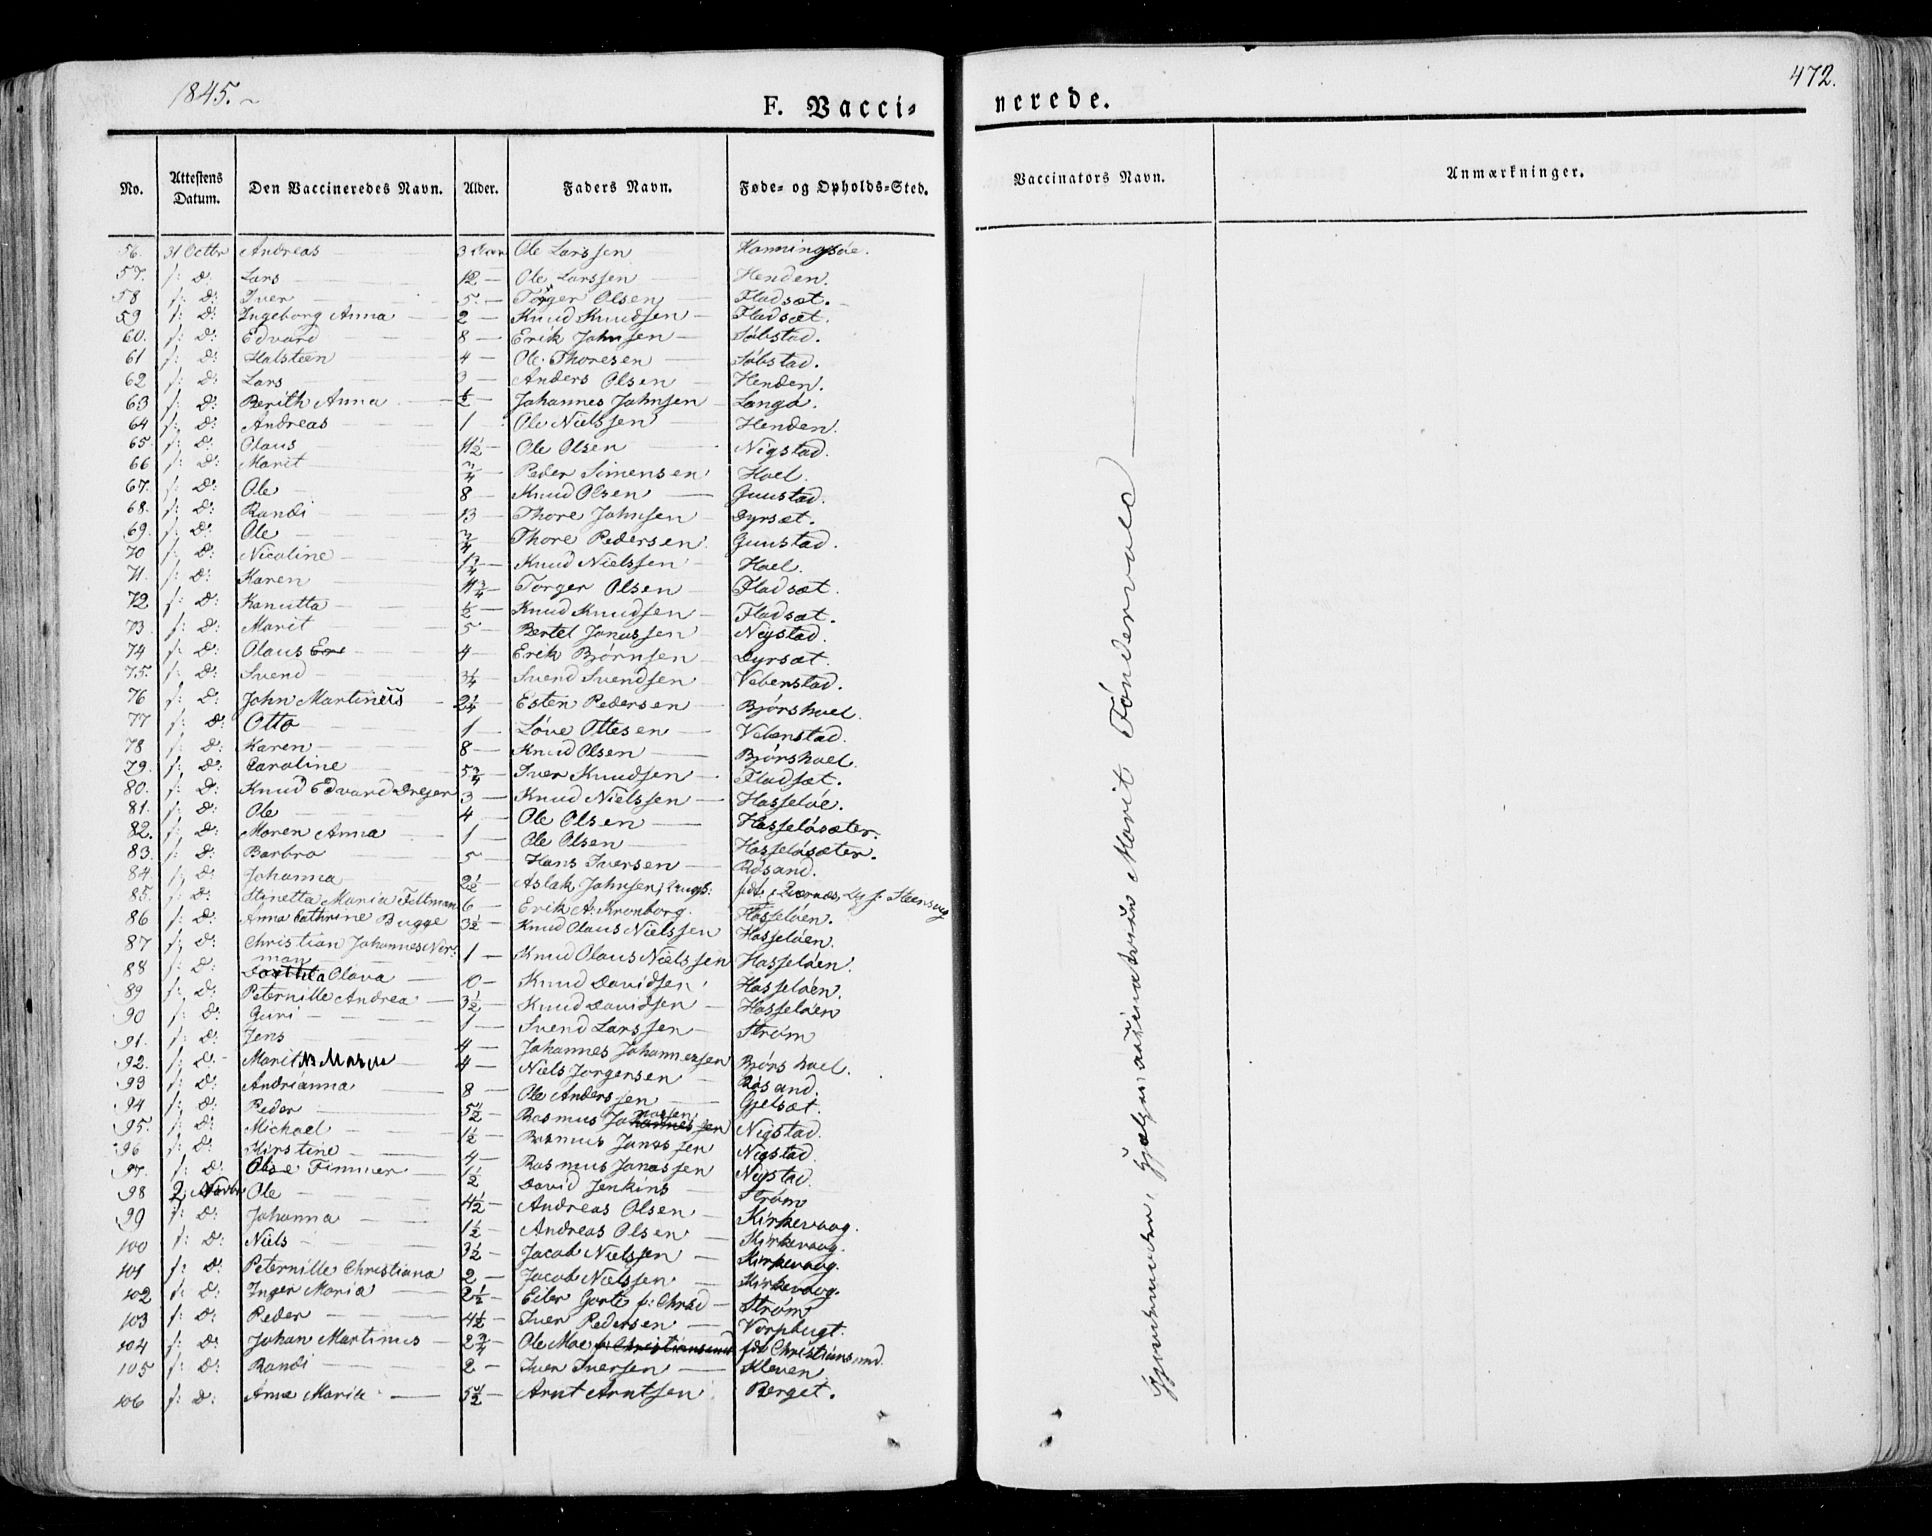 1845.
F. Vacci-
nerede.
472.
No.
Attestens Datum.
Den Vaccineredes Navn.
Alder.
Faders Navn.
Føde- og Opholds-Sted.
Vaccinators Navn.
Anmærkninger.
56. 31 Octbr Andreas 3 Ole Larssen
57. f: D. Lars 12 — Ole Larssen Henden.
58 f: D: Iver 5 — Torger Olsen Fladsæt.
59 f: D: Ingeborg Anna 2 — Knud Knudsen Fladsæt.
60. f: D: Edvard 8 — Erik Johnsen Søbstad.
61 f: D: Halsteen 4 — Ole Thoresen Søbstad.
62 f: D: Lars 3 — Anders Olsen Henden.
63 f: D: Berith Anna ½ — Johannes Johnsen Langø.
64 f: D: Andreas 1 Ole Nielssen Henden.
65. f: D. Olaus 1½ — Ole Olsen Nigstad.
66 f: D: Marit ¾ Peder Simensen Hoel.
67. f: D: Ole 8 — Knud Olsen Guustad.
68. f: D: Randi 13 — Thore Johnsen Dyrsæt.
69. f: D: Ole ¾ Thore Pedersen Guustad.
70 f: D: Nicoline 1¾ — Knud Nielssen Hoel.
71. f: D: Karen 1¾ — Torger Olsen Fladsæt.
72 f: D: Kanutta ½ — Knud Knudsen Fladsæt.
73. f: D: Marit 5 — Bertel Jonassen Nigstad.
74 f: D: Olaus 4 — Erik Bjørnsen Dyrsæt.
75. f: D: Svend 3¼ — Svend Svendsen Vebenstad.
76 f: D: John Martinus 2¼ — Esten Pedersen Bjørshoel.
77 f: D: Otto 1 — Løve Ottesen Vebenstad.
78 f: D: Karen 8 — Knud Olsen Bjørshoel.
79. f: D: Caroline 5¾ — Iver Knudsen Fladsæt.
80. f: D: Knud Edvard Dreyer 3 — Knud Nielssen Hasseløe.
81. f: D: Ole 4 — Ole Olsen Hasseløsæter.
82. f: D: Maren Anna 1 — Ole Olsen Hasseløsæter.
83. f: D: Barbro 5 — Hans Iversen Røsand.
84. f: D: Johanna 2½ — Aslak Johnsen,
85. f: D: Stinetta Maria Feltman 6 — Erik A. Kronborg. Hasseløen.
86 f: D: Anna Cathrine Bugge 3½ — Knud Olaus Nielssen Hasseløen.
87 f: D: Christian Johannes Nor-
man 1 — Knud Olaus Nielssen Hasseløen.
88 f: D: Olava 10 — Knud Davidsen Hasseløen.
89 f: D: Peternille Andrea 3½ — Knud Davidsen Hasseløen
90 f: D: Guri 1 — Svend Larssen Strøm
91. f: D: Jens 4 — Johannes Johannessen Bjørshoel.
92. f: D: Marit 4 — Niels Jørgensen Røsand.
93 f: D: Andrianna 8 — Ole Anderssen Gjelsæt.
94 f: D: Peder 5½ — Rasmus Jonassen Nigstad.
95. f: D: Michael 1½ — Rasmus Jonassen Nigstad.
96 f: D: Kirstine 4 — Rasmus Jonassen Nigstad.
97. f: D: Finmer 1½ David Jenkins Strøm
98 2 Novbr Ole 4½ — Andreas Olsen Kirkevaag.
99 f: D: Johanna 1½ — Andreas Olsen Kirkevaag.
100 f: D: Niels 3½ — Jacob Nielssen Kirkevaag.
101 f: D: Peternille Christiana 2 — Jacob Nielssen Kirkevaag.
102 f: D: Inger Maria 2½ — Eiler Strøm
103 f: D: Peder 4½ — Iver Pedersen Vorpbugt.
104 f: D: Johan Martinus 2¾ — Ole Moe fdt Christiansund.
105 f: D: Randi 2 — Iver Iversen Kleven
106 f: D: Anne Marie 5½ — Arnt Arntsen Berget.
Gjordemoder, Hjælpevaccinatricen Marit Tøndervold